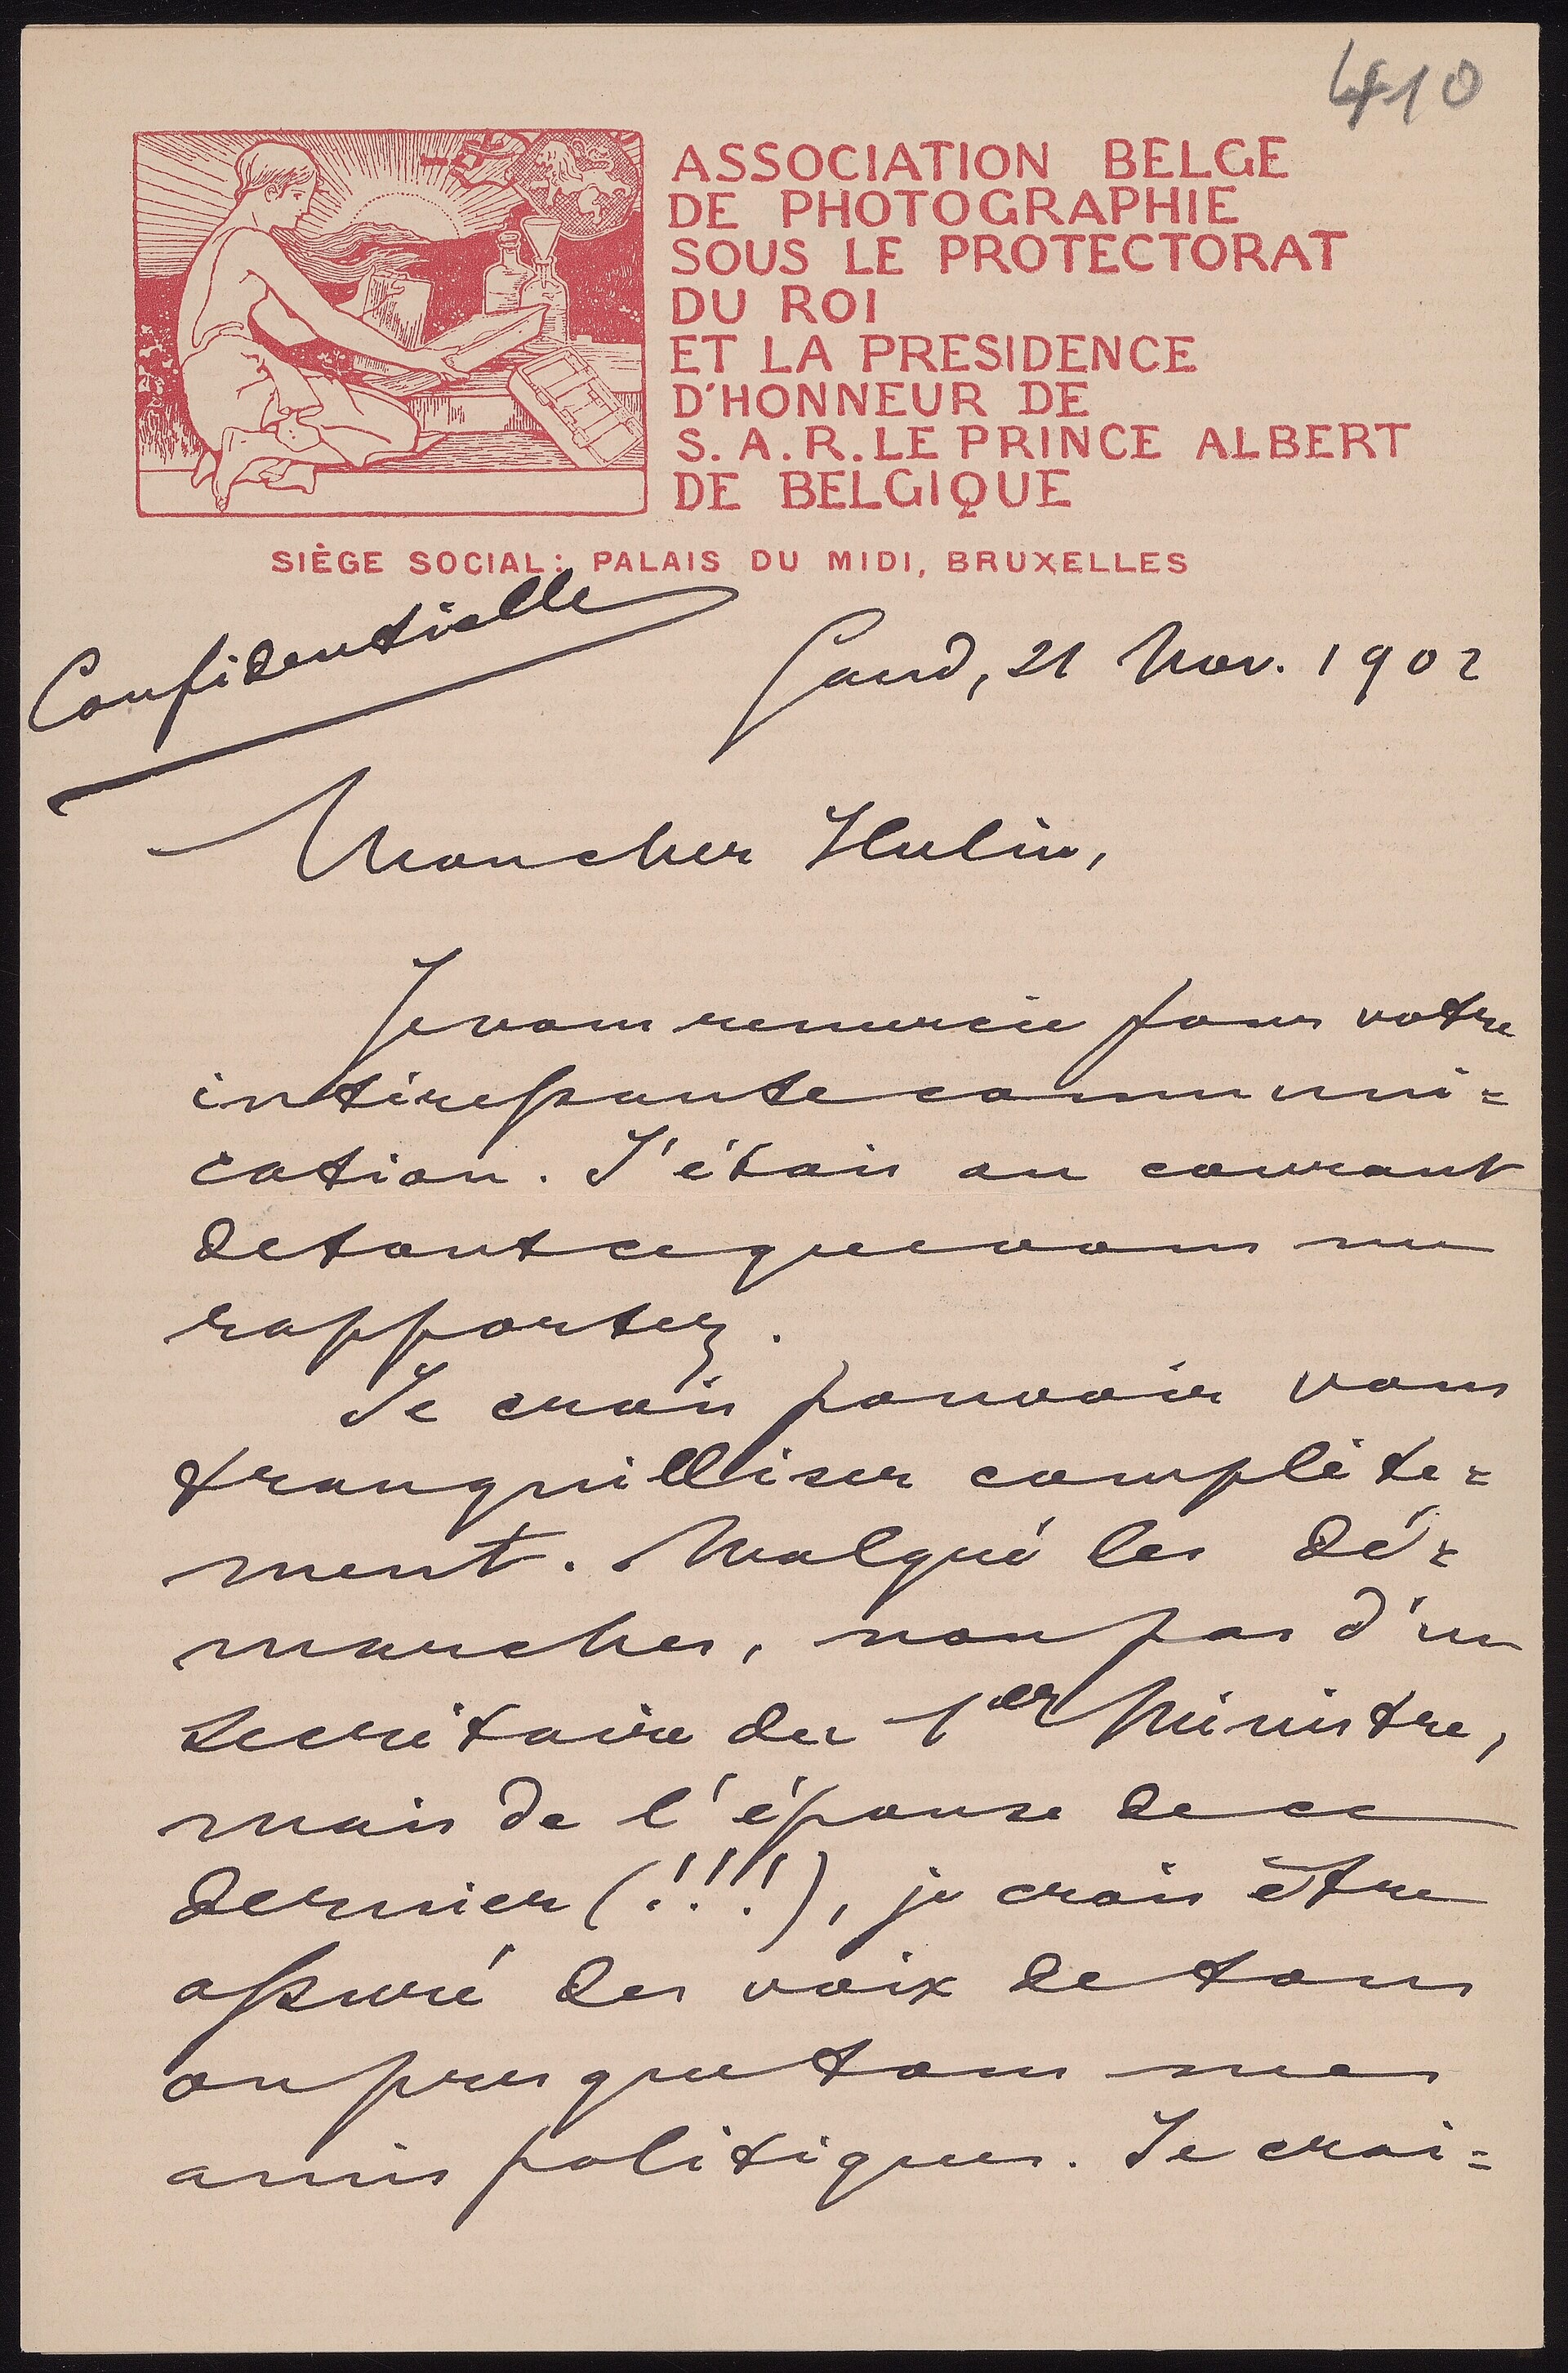 410
ASSOCIATION BELGE
DE PHOTOGRAPHIE
SOUS LE PROTECTORAT
DU ROI
ET LA PRESIDENCE
D'HONNEUR DE
S. A. R. LE PRINCE ALBERT
DE BELGIQUE
SIÈGE SOCIAL: PALAIS DU MIDI, BRUXELLES
Confidentielle
Gand, 21 Nov. 1902
Mon cher Hulin,
Je vous remercie pour votre
intéressante communi=
cation. J'étais au courant
de tout ce que vous me
rapportez.
Je crois pouvoir vous
tranquilliser complète=
ment. Malgré les dé=
marches, non pas d'un
secrétaire du 1er Ministre,
mais de l'épouse de ce
dernier (!!!), je crois être
assuré des voix de tous
ou presque tous mes
amis politiques. Je croi=